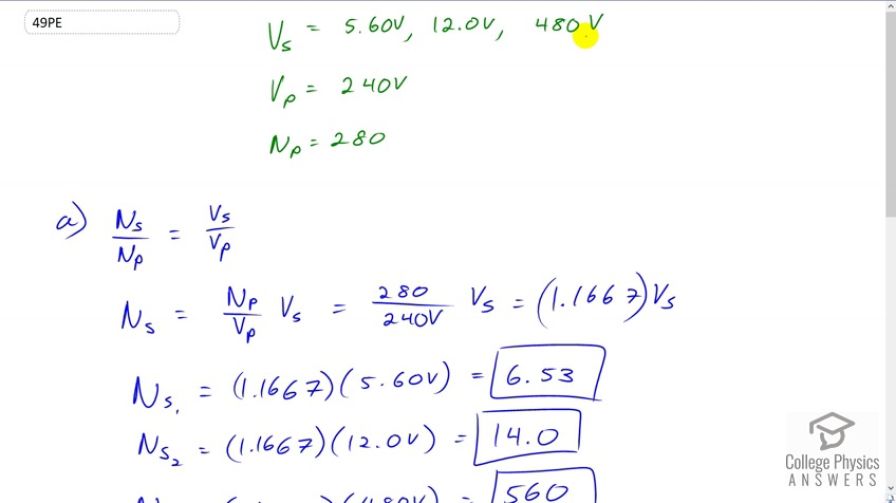 49PE
Vs = 5.60V, 12.0V, 480V
Vp = 240V
Np = 280
a) Ns/Np = Vs/Vp
Ns = Np/Vp Vs = 280/240V Vs = (1.1667)Vs
Ns₁ = (1.1667)(5.60V) = 6.53
Ns₂ = (1.1667)(12.0V) = 14.0
(480V) = 560
College Physics
ANSWERS